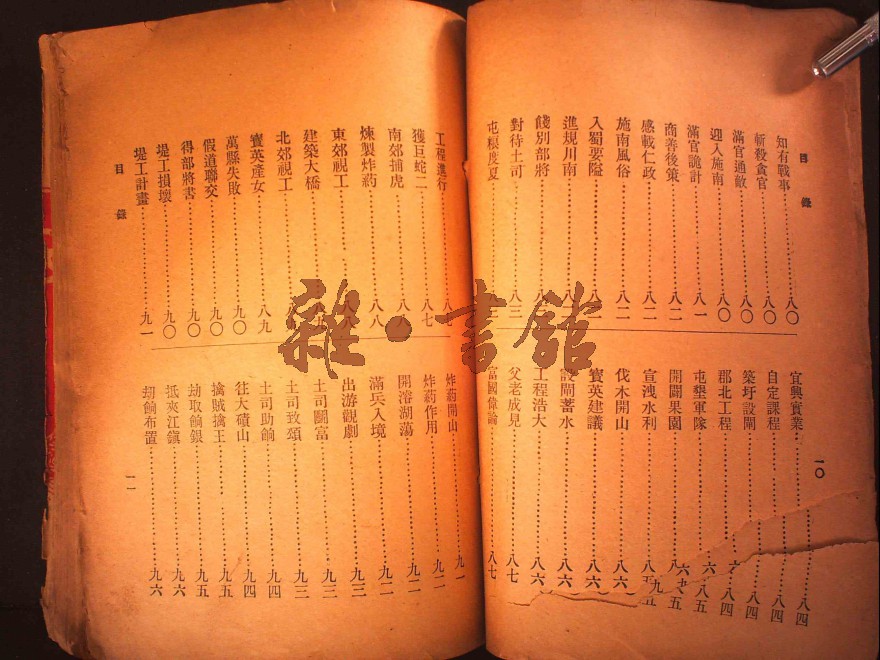 目錄
知有戰事 八〇
斬殺貪官 八〇
滿官通敵 八〇
迎入施南 八〇
滿官詭計 八一
商善後策 八二
感載仁政 八二
施南風俗 八二
入蜀要隘
進規川南
餞別部將
對待土司 八三
屯糧度夏
宜興實業 八四
自定課程 八四
築圩設閘 八四
郡北工程 八四
屯墾軍隊 八五
開闢果園
宣洩水利
伐木開山 八六
寶英建議 八六
設閘蓄水 八六
工程浩大 八六
父老成見 八七
富國偉論 八七
一〇
工程進行
獲巨蛇二 八七
南郊捕虎
煉製炸葯 八八
東郊視工
建築大橋
北郊視工
寶英產女 八九
萬縣失敗 九〇
假道聯交 九〇
得部將書 九〇
堤工損壞 九〇
堤工計畫 九一
目錄
炸葯開山 九一
炸葯作用 九二
開濬湖蕩 九二
滿兵入境 九二
出游觀劇 九三
土司鬭富 九三
土司致頌 九三
土司助餉 九四
往大磧山 九四
擒賊擒王 九五
劫取餉銀 九五
抵夾江鎮 九六
刧餉布置 九六
一一
雜·書館